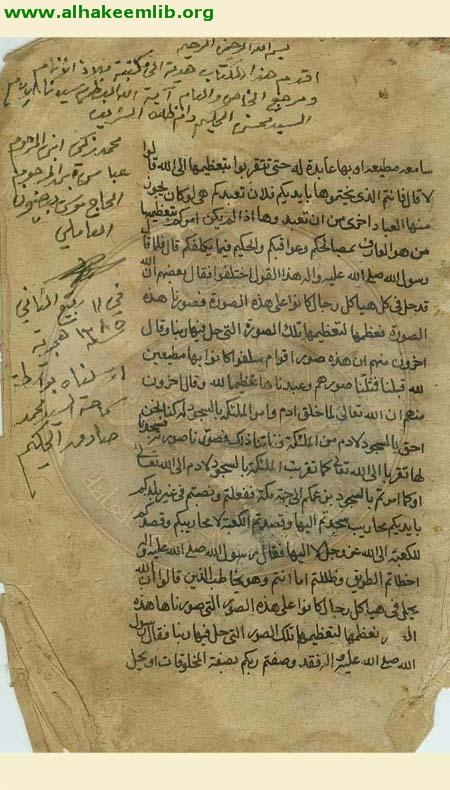 www.alhakeemlib.org
بسم الله الرحمن الرحيم
اقدم هذا الكتاب هدية الى مكتبة ملاذ الأنام
ومرجع الخاص والعام آية الله العظمى سيدنا الامام
السيد محسن الحكيم دام ظله الشريف
محمد زكي ابن المرحوم
عباس بن المرحوم
الحاج موسى
العاملي
في ١١ ربيع الثاني
سنة ١٣٨٥ هجرية
ارسلناه بواسطة
سماحة السيد محمد
صادق الحكيم
سامعة مطيعة لربها عابدة له حتى تتقربوا بتعظيمها الى الله قالوا
لا قال فانتم الذي نحتموها بايديكم فلان تعبدكم هي لو كان يجوز
منها العبادة احرى من ان تعبدوها اذا لم يكن امركم بتعظيمها
من هو العارف بمصالحكم وعواقبكم والحكيم فيما يكلفكم قال فلما قال
رسول الله صلى الله عليه واله هذا القول اختلفوا فقال بعضهم ان الله
قد حل في هياكل رجال كانوا على هذه الصورة فصورنا هذه
الصورة فعظمها لتعظيمها تلك الصورة التي حل فيها ربنا وقال
اخرون منهم ان هذه صور اقوام سلفوا كانوا بها مطيعين
لله قبلنا فمثلنا صورهم وعبدناها تعظيما لله وقال اخرون
منهم ان الله تعالى لما خلق ادم وامر الملئكة بالسجود له كنا نحن
احق بالسجود لادم من الملئكة ففاتنا ذلك فصورنا صورته فسجدنا
لها تقربا الى الله تعالى كما تقربت الملئكة بالسجود لادم الى الله تعالى
وكما امرتم بالسجود بزعمكم الى جهة مكة ففعلتم ونصبتم في غير بلدكم
بايديكم محاريب سجدتم اليها وقصدتم الكعبة لا محاريبكم وقصدكم
للكعبة الى الله عز وجل لا اليها فقال رسول الله صلى الله عليه واله
اخطاتم الطريق وضللتم اما انتم وهو يخاطب الذين قالوا ان الله
يحل في هياكل رجال كانوا على هذه الصور التي صورناها هذه
نعظمها لتعظيمها تلك الصور التي حل فيها ربنا فقال رسول
الله صلى الله عليه واله فقد وصفتم ربكم بصفة المخلوقات او يحل